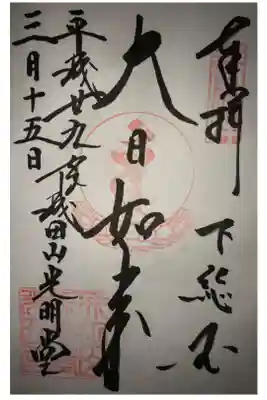 奉拝
下総国
大日如来
平成廿九年成田山光明堂
三月十五日